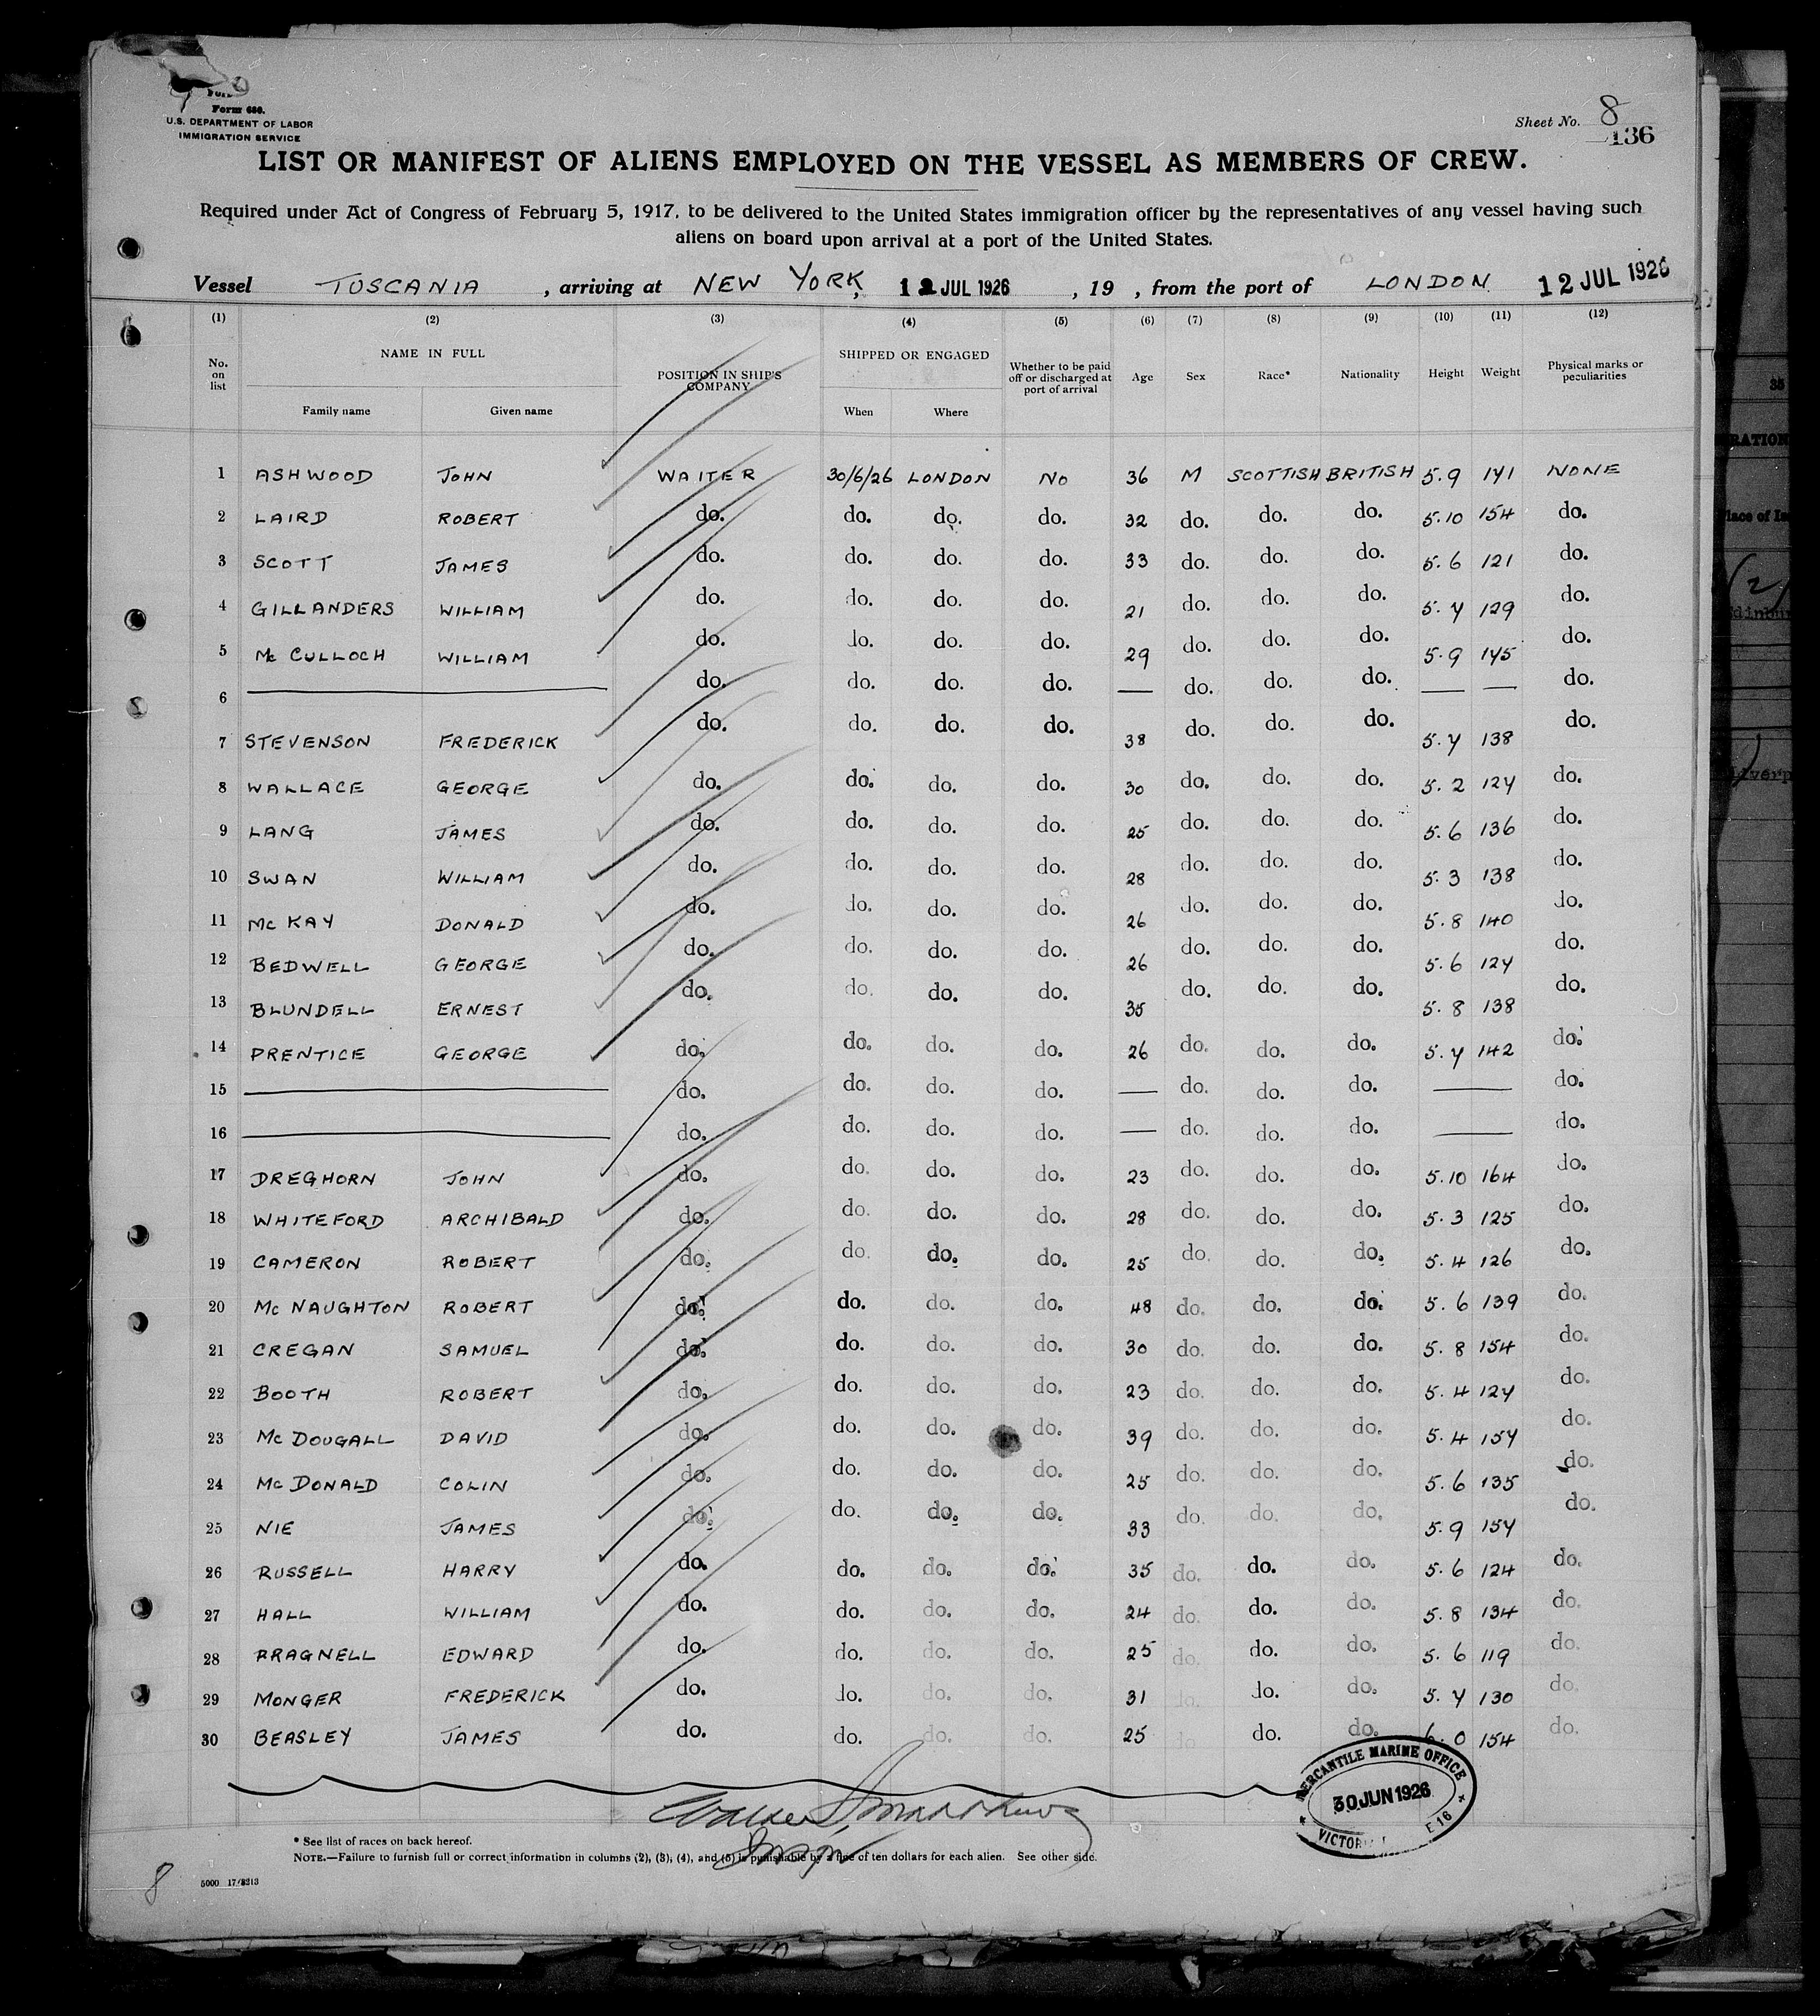 Form 680.
U.S. DEPARTMENT OF LABOR
IMMIGRATION SERVICE
Sheet No. 8
136
LIST OR MANIFEST OF ALIENS EMPLOYED ON THE VESSEL AS MEMBERS OF CREW.
Required under Act of Congress of February 5, 1917, to be delivered to the United States immigration officer by the representatives of any vessel having such
aliens on board upon arrival at a port of the United States.
Vessel TUSCANIA, arriving at NEW YORK, 12 JUL 1926, 19 , from the port of LONDON 12 JUL 1926
(1) (2) (3) (4) (5) (6) (7) (8) (9) (10) (11) (12)
No. on list NAME IN FULL Family name Given name POSITION IN SHIP'S COMPANY SHIPPED OR ENGAGED When Where Whether to be paid off or discharged at port of arrival Age Sex Race* Nationality Height Weight Physical marks or peculiarities
1 ASHWOOD JOHN WAITER 30/6/26 LONDON NO 36 M SCOTTISH BRITISH 5.9 141 NONE
2 LAIRD ROBERT do. do. do. do. 32 do. do. do. 5.10 154 do.
3 SCOTT JAMES do. do. do. do. 33 do. do. do. 5.6 121 do.
4 GILLANDERS WILLIAM do. do. do. do. 21 do. do. do. 5.7 129 do.
5 Mc CULLOCH WILLIAM do. do. do. do. 29 do. do. do. 5.9 145 do.
6 — do. do. do. do. — do. do. do. — — do.
7 STEVENSON FREDERICK do. do. do. do. 38 do. do. do. 5.7 138 do.
8 WALLACE GEORGE do. do. do. do. 30 do. do. do. 5.2 127 do.
9 LANG JAMES do. do. do. do. 25 do. do. do. 5.6 136 do.
10 SWAN WILLIAM do. do. do. do. 28 do. do. do. 5.3 138 do.
11 Mc KAY DONALD do. do. do. do. 26 do. do. do. 5.8 140 do.
12 BEDWELL GEORGE do. do. do. do. 26 do. do. do. 5.6 127 do.
13 BLUNDELL ERNEST do. do. do. do. 35 do. do. do. 5.8 138 do.
14 PRENTICE GEORGE do. do. do. do. 26 do. do. do. 5.7 142 do.
15 — do. do. do. do. — do. do. do. — do.
16 — do. do. do. do. — do. do. do. — do.
17 DREGHORN JOHN do. do. do. do. 23 do. do. do. 5.10 164 do.
18 WHITEFORD ARCHIBALD do. do. do. do. 28 do. do. do. 5.3 125 do.
19 CAMERON ROBERT do. do. do. do. 25 do. do. do. 5.4 126 do.
20 Mc NAUGHTON ROBERT do. do. do. do. 48 do. do. do. 5.6 139 do.
21 CREGAN SAMUEL do. do. do. do. 30 do. do. do. 5.8 154 do.
22 BOOTH ROBERT do. do. do. do. 23 do. do. do. 5.4 127 do.
23 Mc DOUGALL DAVID do. do. do. do. 39 do. do. do. 5.4 157 do.
24 Mc DONALD COLIN do. do. do. do. 25 do. do. do. 5.6 135 do.
25 NIE JAMES do. do. do. do. 33 do. do. do. 5.9 157 do.
26 RUSSELL HARRY do. do. do. do. 35 do. do. do. 5.6 124 do.
27 HALL WILLIAM do. do. do. do. 24 do. do. do. 5.8 134 do.
28 PRAGNELL EDWARD do. do. do. do. 25 do. do. do. 5.6 119 do.
29 MONGER FREDERICK do. do. do. do. 31 do. do. do. 5.7 130 do.
30 BEASLEY JAMES do. do. do. do. 25 do. do. do. 6.0 154 do.
MERCANTILE MARINE OFFICE
30 JUN 1926
E 16
* See list of races on back hereof.
NOTE.—Failure to furnish full or correct information in columns (2), (3), (4), and (5) is punishable by a fine of ten dollars for each alien. See other side.
8